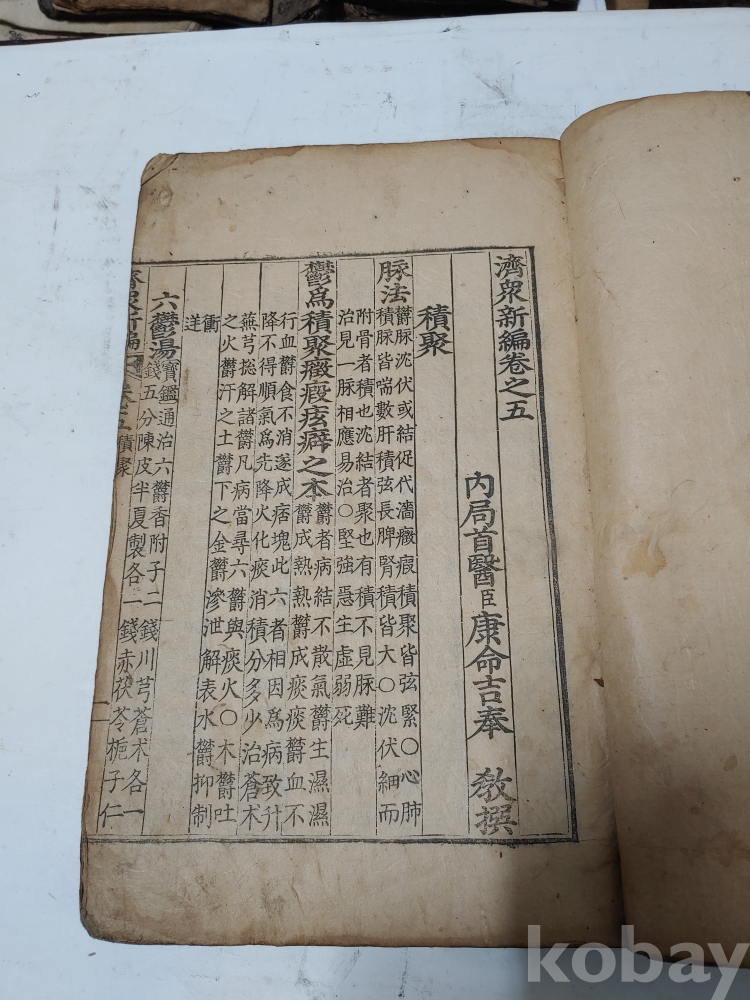 濟衆新編卷之五
內局首醫臣康命吉奉 敎撰
積聚
脉法
欝脉沈伏或結促代濇癥瘕積聚皆弦緊〇心肺
積脉皆喘數肝積弦長脾腎積皆大〇沈伏細而
附骨者積也沈結者聚也有積不見脉難
治見一脉相應易治〇堅強急生虛弱死
鬱爲積聚癥瘕痃癖之本
欝者病結不散氣欝生濕濕
欝成熱熱欝成痰痰欝血不
行血欝食不消遂成痞塊此六者相因爲病致升
降不得順氣爲先降火化痰消積分多少治蒼术
蕪芎摠解諸欝凡病當尋六欝與痰火〇木欝吐
之火欝汗之土欝下之金欝滲泄解表水欝抑制
衝
逆
六鬱湯
寶鑑通治六欝香附子二錢川芎蒼术各一
錢五分陳皮半夏製各一錢赤茯苓梔子仁
濟衆新編 卷之五積聚
一
kobay